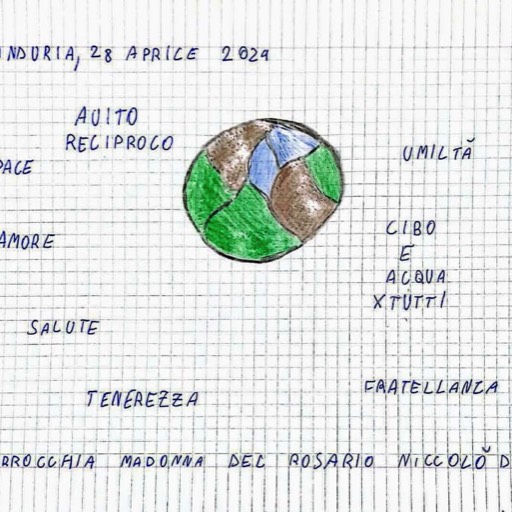 NDURIA, 28 APRILE 2024
AUITO
RECIPROCO
PACE
UMILTĂ
AMORE
CIBO
E
ACQUA
XTUTTI
SALUTE
TENEREZZA
FRATELLANZA
RROCCHIA MADONNA DEL ROSARIO NICCOLŎ D